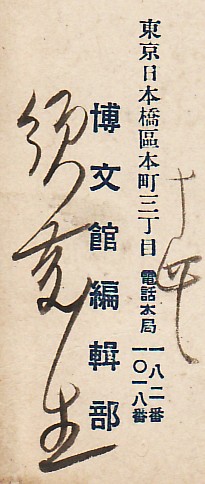 東京日本橋區本町三丁目
電話本局 一八二番
一〇一八番
博文館編輯部